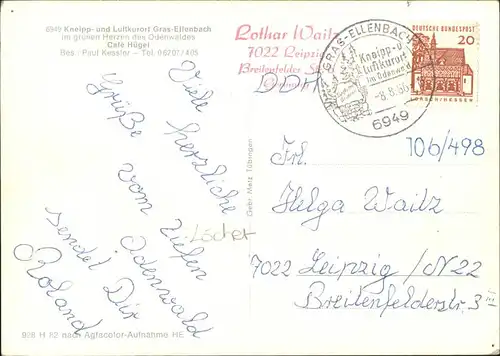 6949 Kneipp- und Luftkurort Gras-Ellenbach
im grünen Herzen des Odenwaldes
Café Hügel
Bes.: Paul Kessler – Tel. 06207/405
Viele herzliche
Grüße vom
tiefen
Odenwald
sendet Dir
Roland
Löcher
928 H 82 nach Agfacolor-Aufnahme HE
Gebr. Metz Tübingen
Lothar Waitz
7022 Leipzig
Breitenfelder Str.
DDR
GRAS-ELLENBACH
Kneipp- u.
Luftkurort
im Odenwald
-8.8.66
6949
DEUTSCHE BUNDESPOST
20
LORSCH/HESSEN
106/498
Frl.
Helga Waitz
7022 Leipzig / N 22
Breitenfelderstr. 3 III